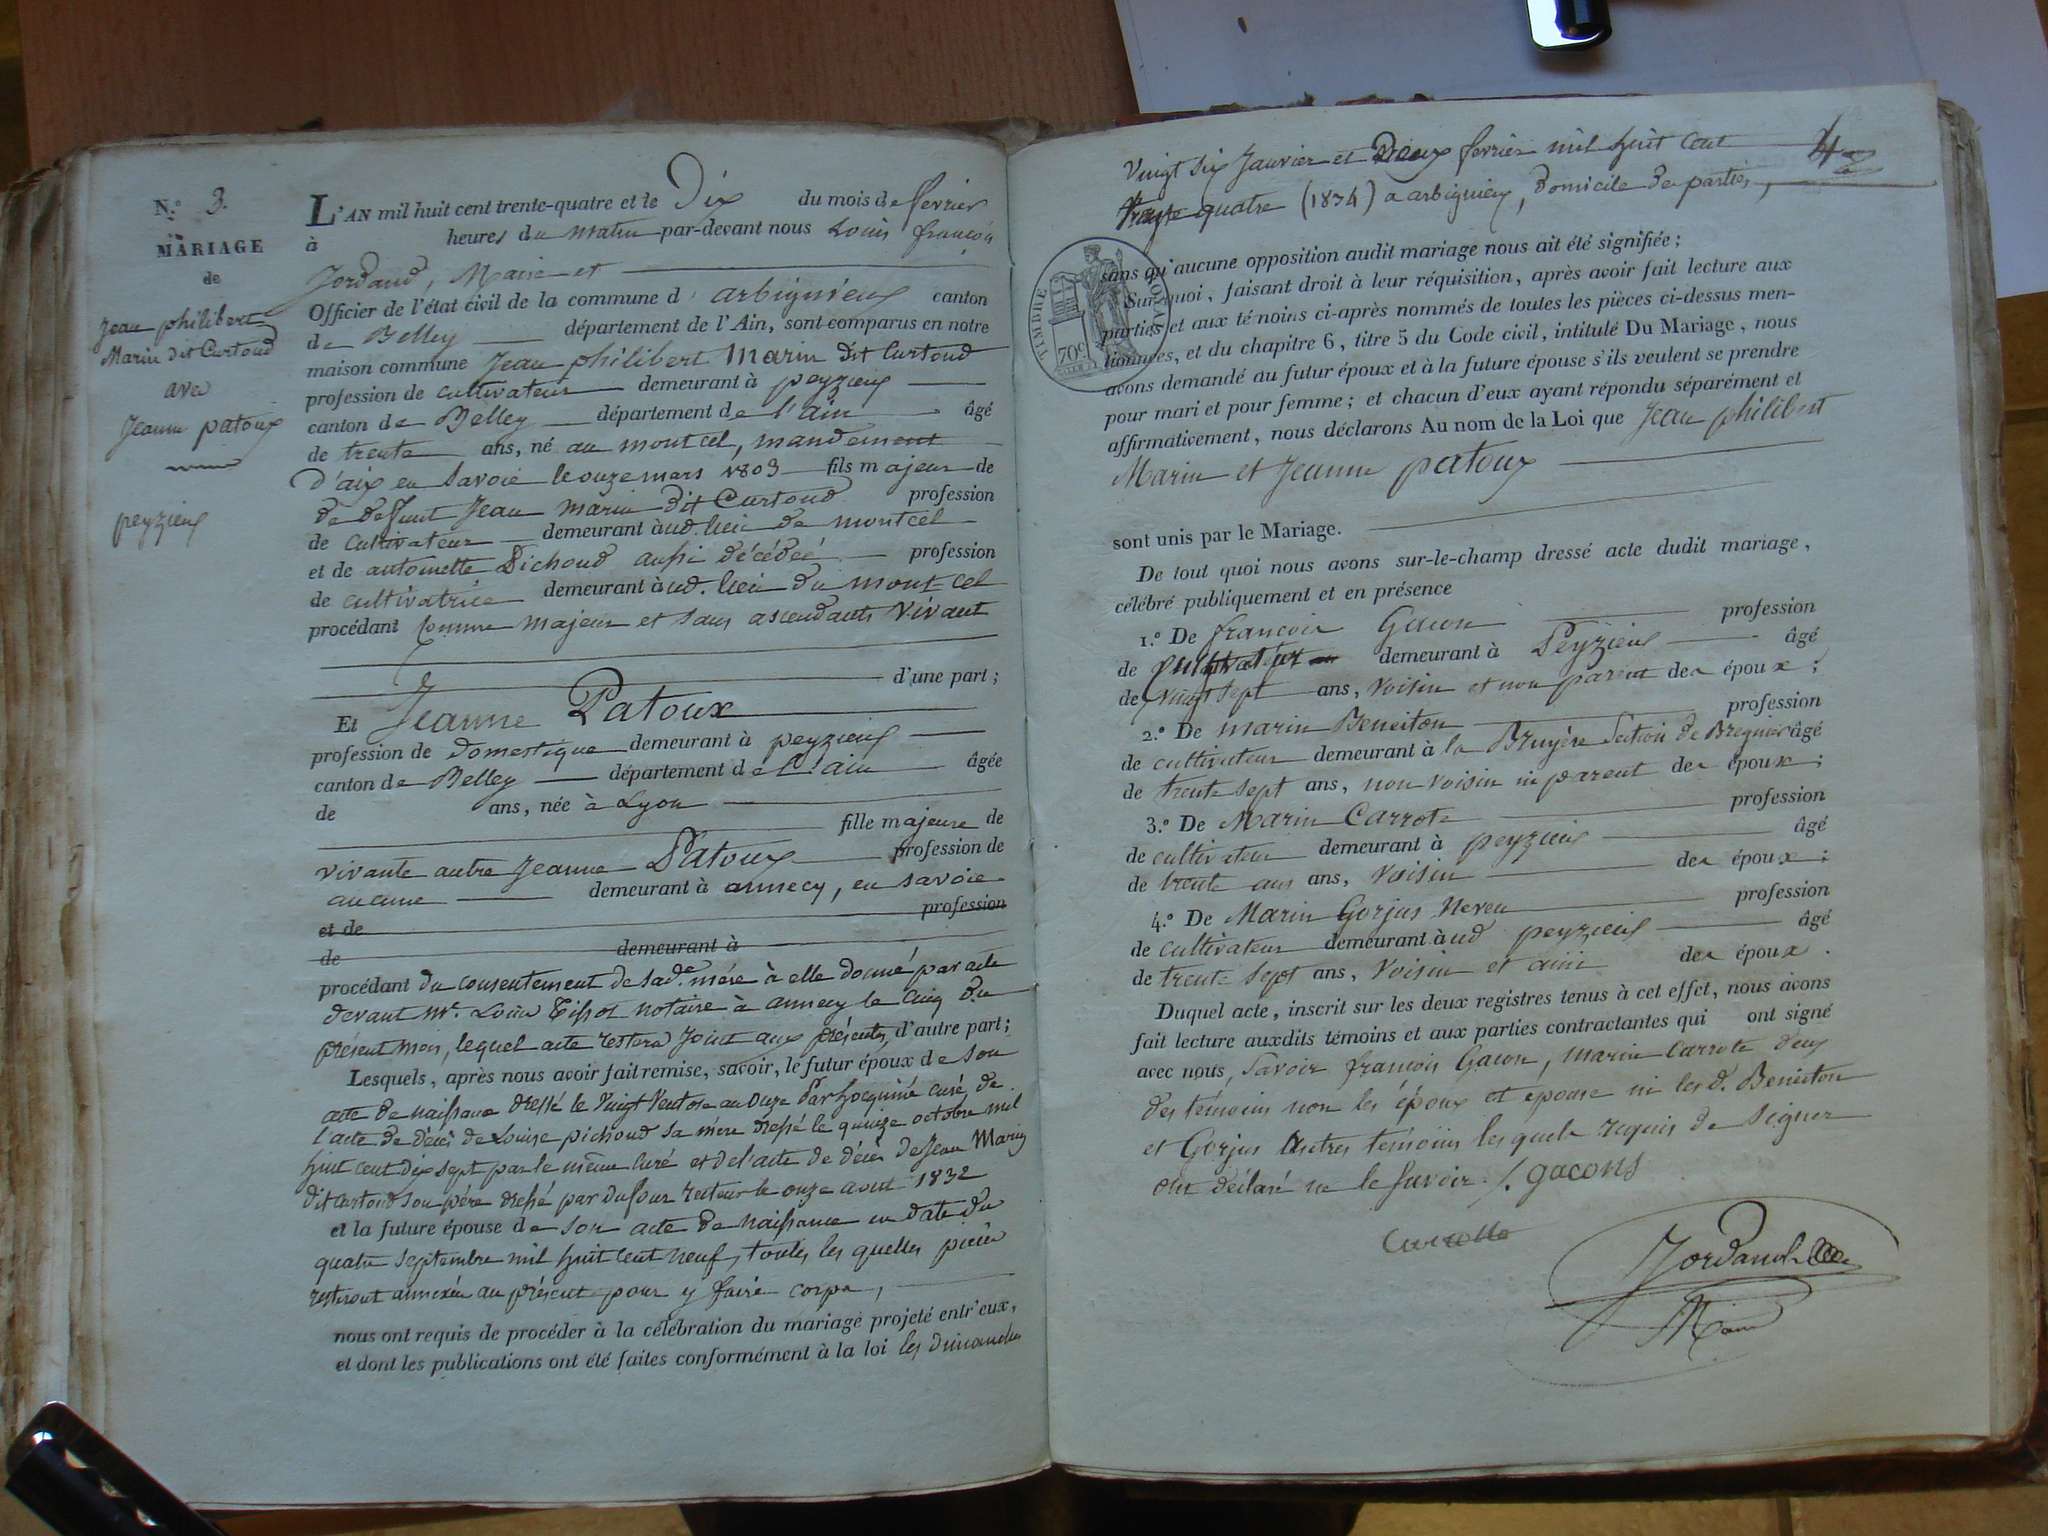 N.º 3.
MARIAGE
de
Jean philibert
Marin dit Curtoud
avec
Jeanne patoux
peyzieux
L'AN mil huit cent trente-quatre et le Dix du mois de fevrier
à heures du matin par-devant nous Louis françois
Jordand, Maire et
Officier de l'état civil de la commune d'arbignieux canton
de Belley département de l'Ain, sont comparus en notre
maison commune Jean philibert Marin dit Curtoud
profession de cultivateur demeurant à peyzieux
canton de Belley département de l'ain âgé
de trente ans, né au montcel, mandement
d'aix en Savoie le onze mars 1803 fils majeur de
de defunt Jean Marin dit Curtoud profession
de cultivateur demeurant àud. lieu de montcel
et de antoinette Pichoud aussi décédée profession
de cultivatrice demeurant àud. lieu du mont-cel
procédant comme majeur et sans ascendants vivant
d'une part ;
Et Jeanne Patoux
profession de domestique demeurant à peyzieux
canton de Belley département de l'ain âgée
de ans, née à Lyon
fille majeure de
vivante autre Jeanne Patoux profession de
aucune demeurant à annecy, en savoie
et de profession
de demeurant à
procédant du consentement de sad.e mère à elle donné par acte
devant Mr. Louis Tissot notaire à annecy le cinq du
présent mois, lequel acte restera joint aux présentes, d'autre part ;
Lesquels, après nous avoir fait remise, savoir, le futur époux de son
acte de naissance dressé le vingt Ventose an onze par curé de
l'acte de décès de Louise pichoud sa mere dressé le quinze octobre mil
huit cent dix sept par le même curé et de l'acte de décès de Jean Marin
dit Curtoud son père dressé par Dufour recteur le onze aout 1832
et la future épouse de son acte de naissance en date du
quatre septembre mil huit cent neuf, toutes les quelles pièces
resteront annexées au présent pour y faire corps,
nous ont requis de procéder à la célébration du mariage projeté entr'eux,
et dont les publications ont été faites conformément à la loi les dimanches
vingt six Janvier et Deux fevrier mil huit cent
trente quatre (1834) a arbignieux, domicile des parties,
4
TIMBRE ROYAL
70c
sans qu'aucune opposition audit mariage nous ait été signifiée ;
Sur quoi, faisant droit à leur réquisition, après avoir fait lecture aux
parties et aux témoins ci-après nommés de toutes les pièces ci-dessus men-
tionnées, et du chapitre 6, titre 5 du Code civil, intitulé Du Mariage, nous
avons demandé au futur époux et à la future épouse s'ils veulent se prendre
pour mari et pour femme ; et chacun d'eux ayant répondu séparément et
affirmativement, nous déclarons Au nom de la Loi que Jean philibert
Marin et Jeanne patoux
sont unis par le Mariage.
De tout quoi nous avons sur-le-champ dressé acte dudit mariage,
célébré publiquement et en présence
1.º De françois Gacon profession
de cultivateur demeurant à Peyzieux âgé
de vingt sept ans, voisin et non parent des époux ;
2.º De marin Beneiton profession
de cultivateur demeurant à la Bruyère Section de Bregnier âgé
de trente sept ans, non voisin ni parent des époux ;
3.º De Marin Carrote profession
de cultivateur demeurant à peyzieux âgé
de trente ans ans, voisin des époux ;
4.º De Marin Gorjus Neveu profession
de cultivateur demeurant àud peyzieux âgé
de trente sept ans, voisin et ami des époux .
Duquel acte, inscrit sur les deux registres tenus à cet effet, nous avons
fait lecture auxdits témoins et aux parties contractantes qui ont signé
avec nous, savoir françois Gacon, marin Carrote deux
des témoins non les époux et epouse ni les d. Beneiton
et Gorjus autres témoins lesquels requis de signer
ont déclaré ne le savoir. f. gacons
Carrotte
Jordand
Maire